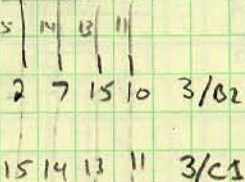 5 14 13 11
2 7 15 10 3/B2
15 14 13 11 3/C1